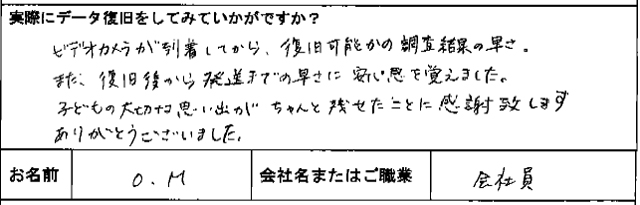 実際にデータ復旧をしてみていかがですか？
ビデオカメラが到着してから、復旧可能かの調査結果の早さ。
また、復旧後から発送までの早さに安心感を覚えました。
子どもの大切な思い出がちゃんと残せたことに感謝致します
ありがとうございました。
お名前 O.M 会社名またはご職業 会社員